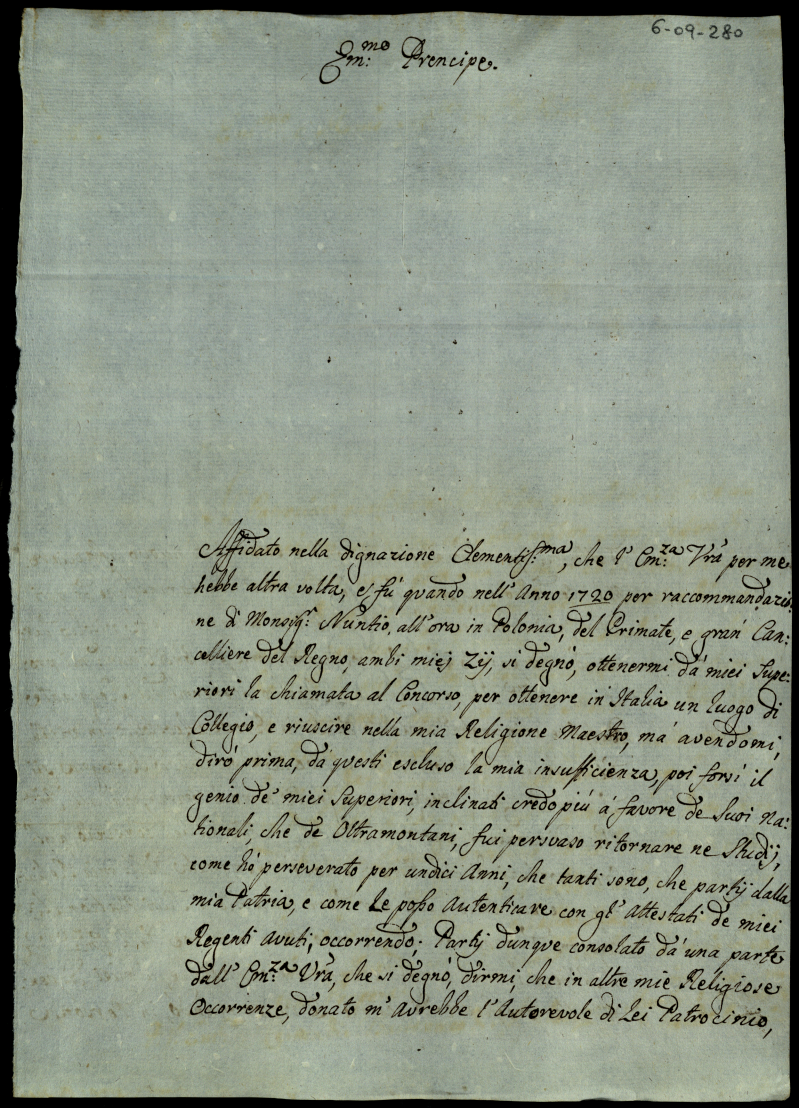 6-09-280
Em:mo Prencipe.
Affidato nella dignazione Clementiss:ma, che l'Em:za Vrã per me
hebbe altra volta, e fù quando nell'Anno 1720 per raccommandazio:
ne di Monsigr: Nuntio, all'ora in Polonia, del Primate, e gran Can:
celliere del Regno, ambi miej Zij, si degnò, ottenermi dà miei Supe:
riori la chiamata al Concorso, per ottenere in Italia un luogo di
Collegio, e riuscire nella mia Religione Maestro, mà avendomi,
dirò prima, dà questi escluso la mia insufficienza, poi forsi il
genio de' miei Superiori, inclinati credo più à favore de Suoi Na:
tionali, che de Oltramontani, fui persuaso ritornare ne Studij,
come hò perseverato per undici Anni, che tanti sono, che partij dalla
mia Patria, e come Le posso Autenticare con gl'Attestati de miei
Regenti Avuti, occorrendo; Partij dunque consolato dà una parte
dall'Em:za Vrã, che si degnò, dirmi, che in altre mie Religiose
Occorrenze, donato m'avrebbe l'Autorevole di Lei Patrocinio,